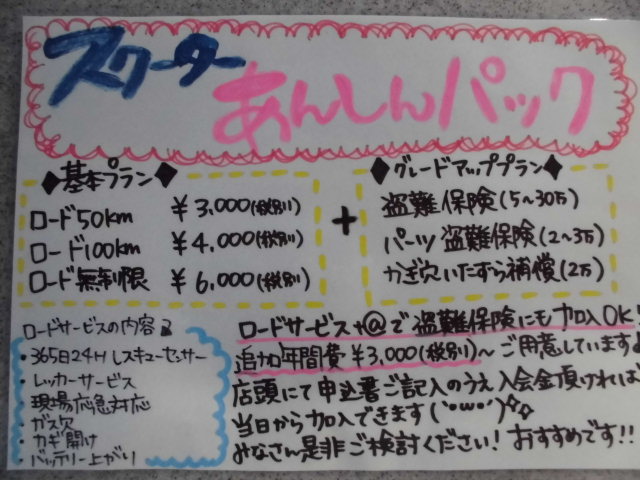 スクーター
あんしんパック
◆基本プラン◆
ロード50km ¥3,000(税別)
ロード100km ¥4,000(税別)
ロード無制限 ¥6,000(税別)
+
◆グレードアッププラン◆
盗難保険(5~30万)
パーツ盗難保険(2~3万)
かぎ穴いたずら補償(2万)
ロードサービスの内容
・365日24Hレスキューセッサー
・レッカーサービス
現場応急対応
・ガス欠
・カギ開け
・バッテリー上がり
ロードサービス+@で盗難保険にも加入OK!
追加年間費¥3,000(税別)~ご用意しています♪
店頭にて申込書ご記入のうえ入会金頂ければ
当日から加入できます(`・ω・´)
みなさん是非ご検討ください!おすすめです!!